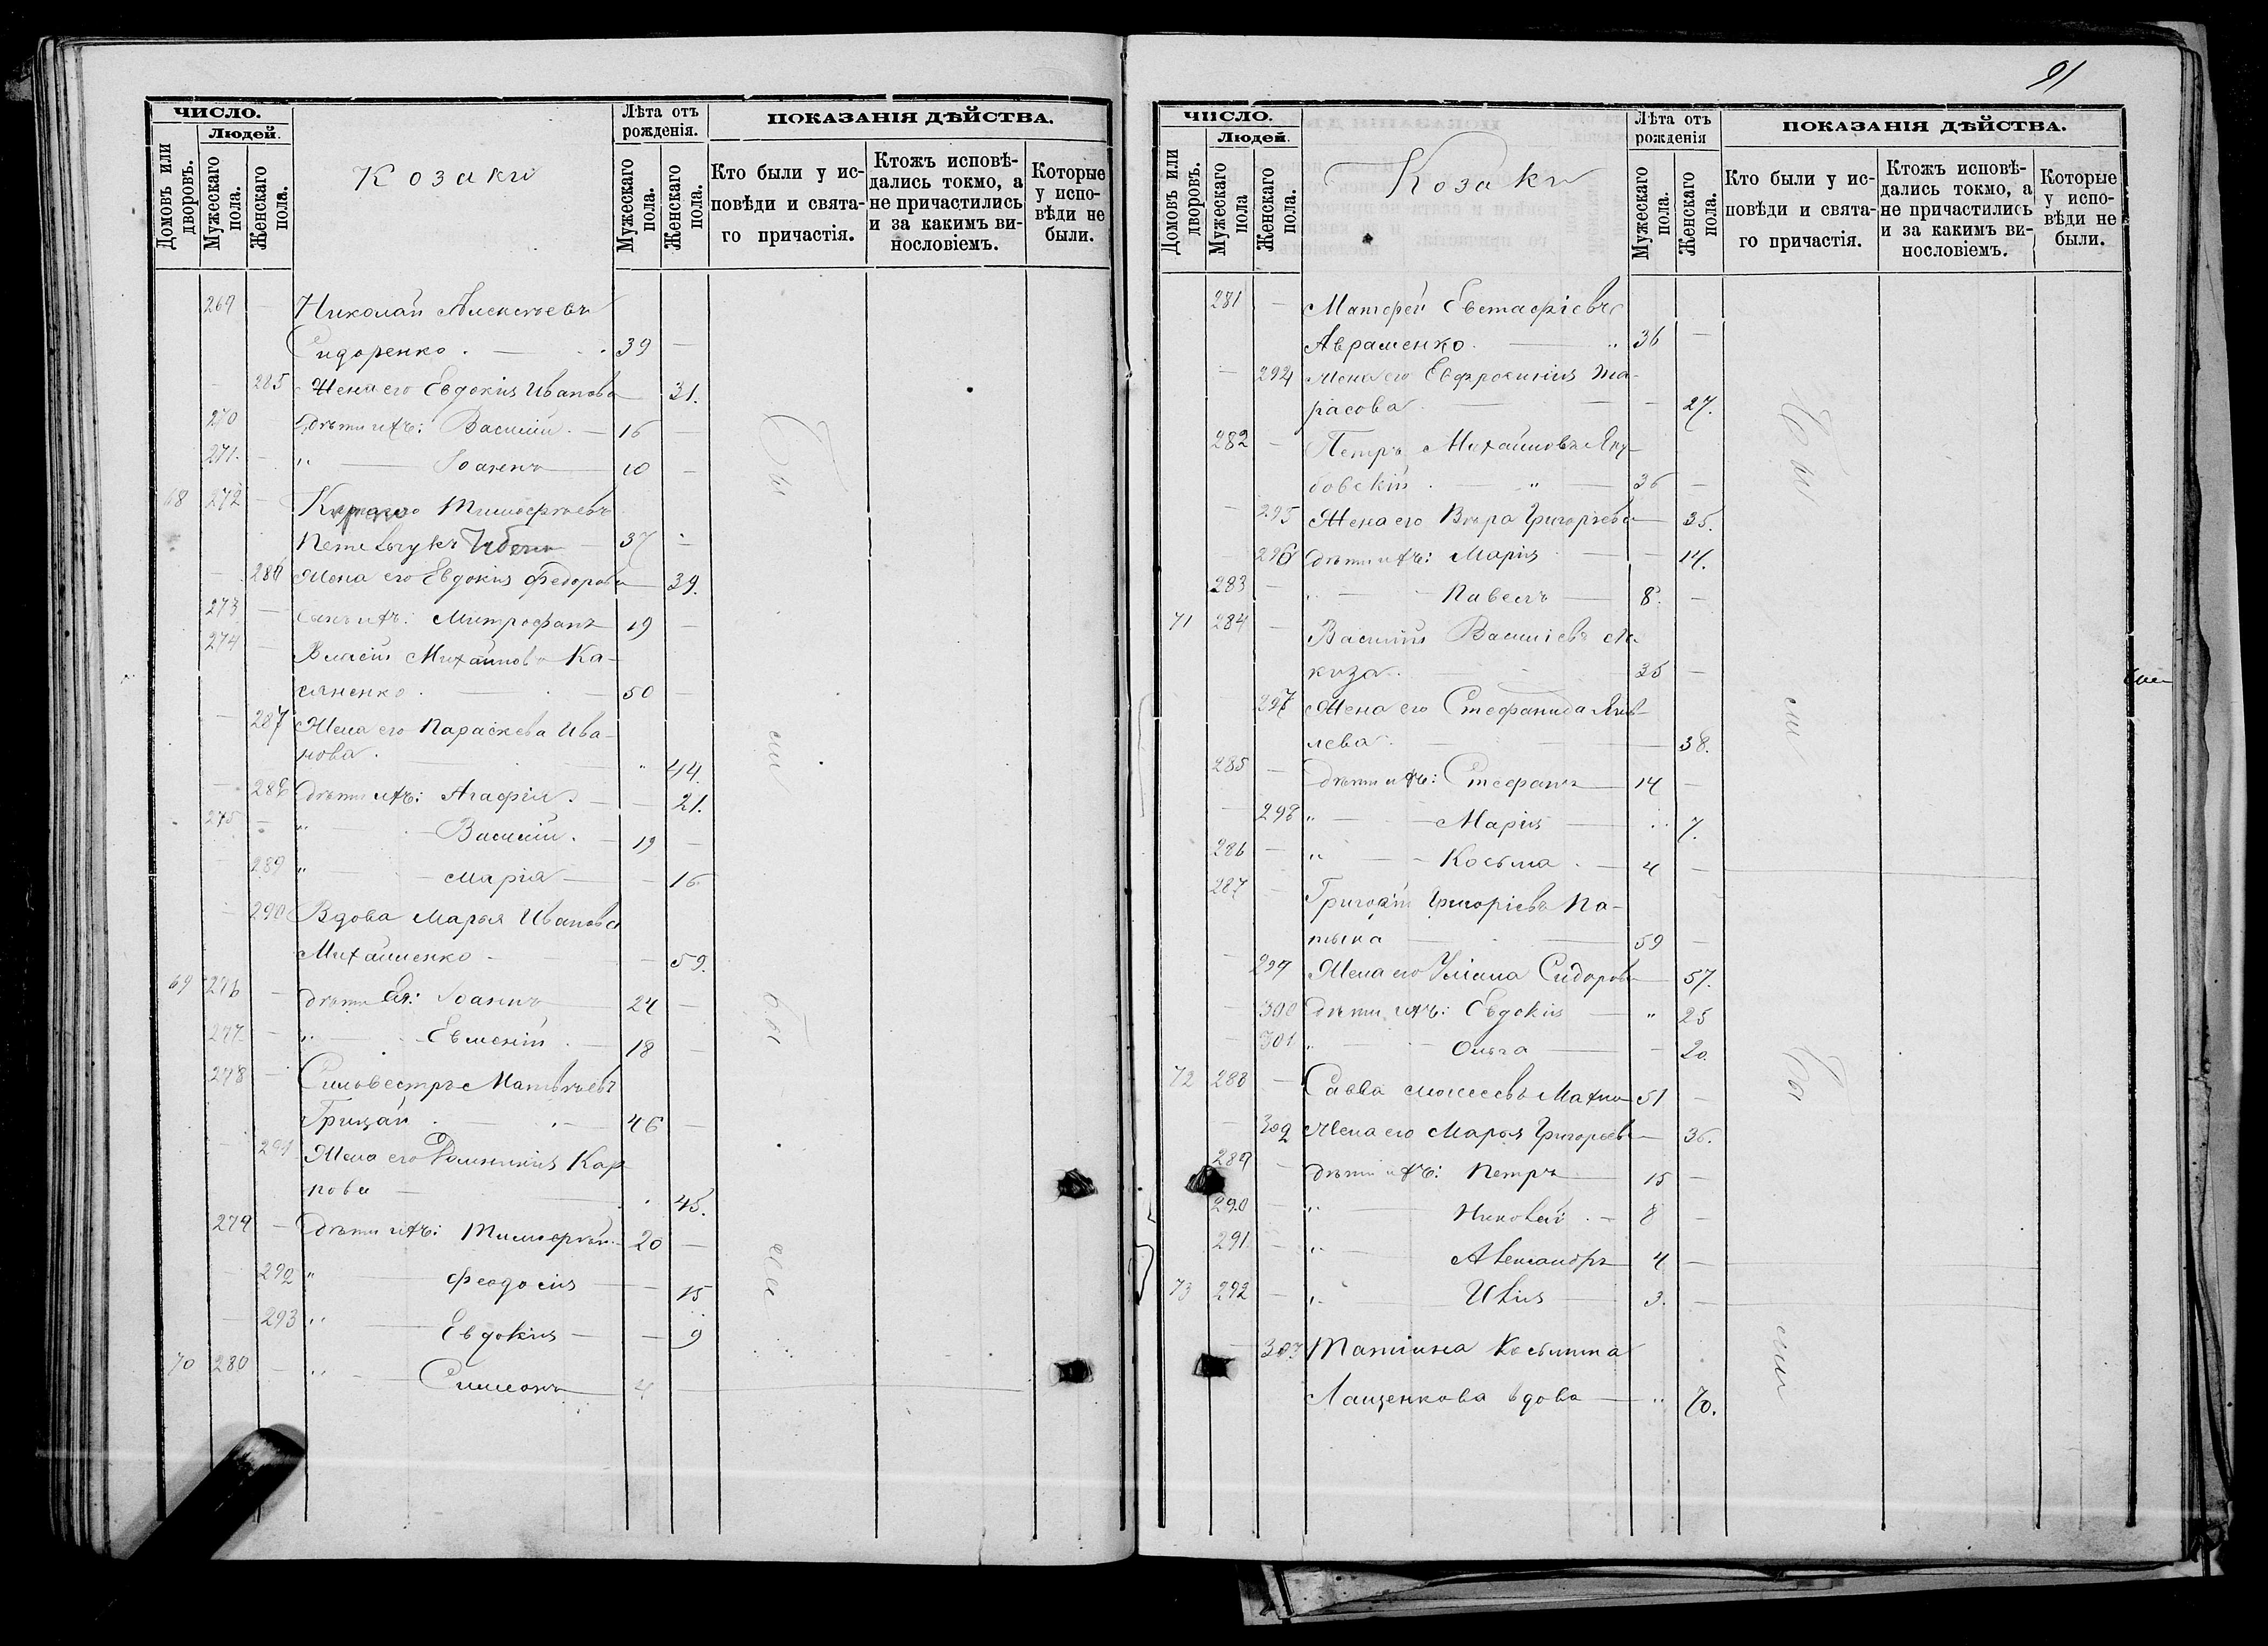 91
ЧИСЛО.
Людей.
Домовъ или дворовъ.
Мужескаго пола.
Женскаго пола.
Козаки
Лѣта отъ рожденія.
Мужескаго пола.
Женскаго пола.
ПОКАЗАНІЯ ДѢЙСТВА.
Кто были у исповѣди и святаго причастія.
Ктожъ исповѣдались токмо, а не причастились и за какимъ винословіемъ.
Которые у исповѣди не были.
269 — Николай Алексѣевъ
Сидоренко . — . 39 —
— 285 Жена его Евдокія Иванова 31.
270 Дѣти ихъ: Василій . — 16 —
271. — " — Іоаннъ — 10 —
68 272 — Тимоѳѣевъ
37 —
— 286 Жена его Евдокія Федорова 39.
273 — Сынъ ихъ: Митрофанъ 19 —
274 — Власій Михайловъ Ка-
сяненко . — 50 —
— 287 Жена его Параскева Ива-
нова . — " 44.
— 288 Дѣти ихъ: Агафія . — — 21.
275 — " — Василій . — 19 —
289 " — Марія — — 16
— 290 Вдова Марья Иванова
Михайленко - — 59.
69 276 — Дѣти ея: Іоаннъ 24 —
277 — " — Евмений . — 18 —
278 — Сильвестръ Матвѣевъ
Грицай . — 46 —
— 291 Жена его Домникія Кар-
пова — . 45.
279 — Дѣти ихъ: Тимоѳѣй . 20 —
— 292 " — Феодосія — — 15
— 293 " — Евдокія — — 9
70 280 — " — Симеонъ — 4 —
Бы
ли
Бы
ли
ЧИСЛО.
Людей.
Домовъ или дворовъ.
Мужескаго пола
Женскаго пола.
Козаки
Лѣта отъ рожденія
Мужескаго пола.
Женскаго пола.
ПОКАЗАНІЯ ДѢЙСТВА.
Кто были у исповѣди и святаго причастія.
Ктожъ исповѣдались токмо, а не причастились и за какимъ винословіемъ.
Которые у исповѣди не были.
281 — Матфей Евстафіевъ
Авраменко . — " 36 —
— 294 Жена его Евфросинія Та-
расова — — 27.
282 — Петръ Михайловъ Яку-
бовскій . — " — 36 —
— 295 Жена его Вѣра Григорьева 35.
— 296 Дѣти ихъ: Марія — — 14.
283 — " — Павелъ — 8. —
71 284 — Василій Васильевъ Ло-
киза . — 35 —
297 Жена его Стефанида Яков-
лева . — 38.
285 — Дѣти ихъ: Стефанъ 14 —
— 298 " — Марія — 7.
286 — " — Косьма . — 4 —
287 — Григорій Григоріевъ Па-
тыка — 59 —
— 299 Жена его Уліана Сидорова 57.
— 300 Дѣти ихъ: Евдокія — " 25
— 301 " — Ольга — — 20.
72 288 — Савва Моисеевъ Махно 51 —
— 302 Жена его Марья Григорьева 36.
289 — Дѣти ихъ: Петръ 15 —
290 — " — Николай . — 8 —
291. — " — Александръ 4 —
73 292 — " — Илія — 3. —
— 303 Татіана Косьмина
Лащенкова вдова — " 70.
Бы
ли
Бы
ли